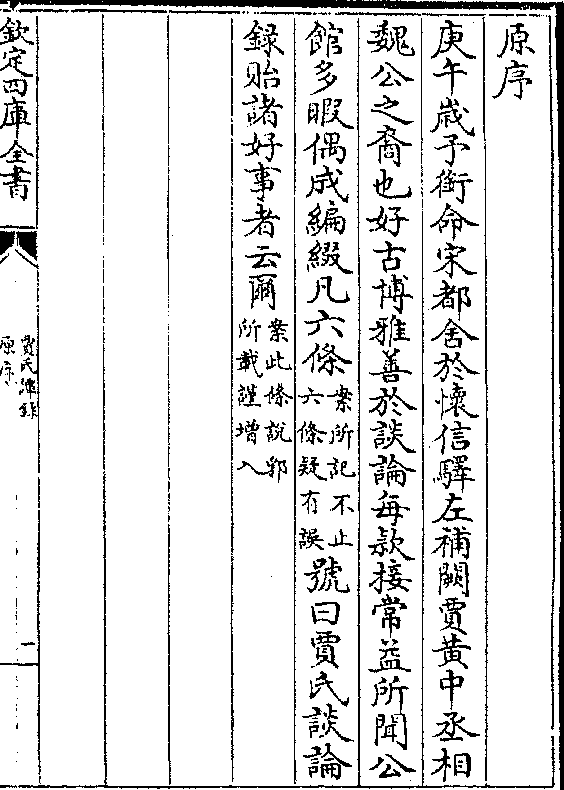 原序
庚午歲予銜命宋都舍於懷信驛左補闕賈黃中丞相
魏公之裔也好古博雅善於談論每款接常益所聞公
館多暇偶成編綴凡六條案所記不止六條疑有誤號曰賈氏談論
録貽諸好事者云爾案此條說郛所載謹增入
欽定四庫全書
賈氏譚録
原序
一